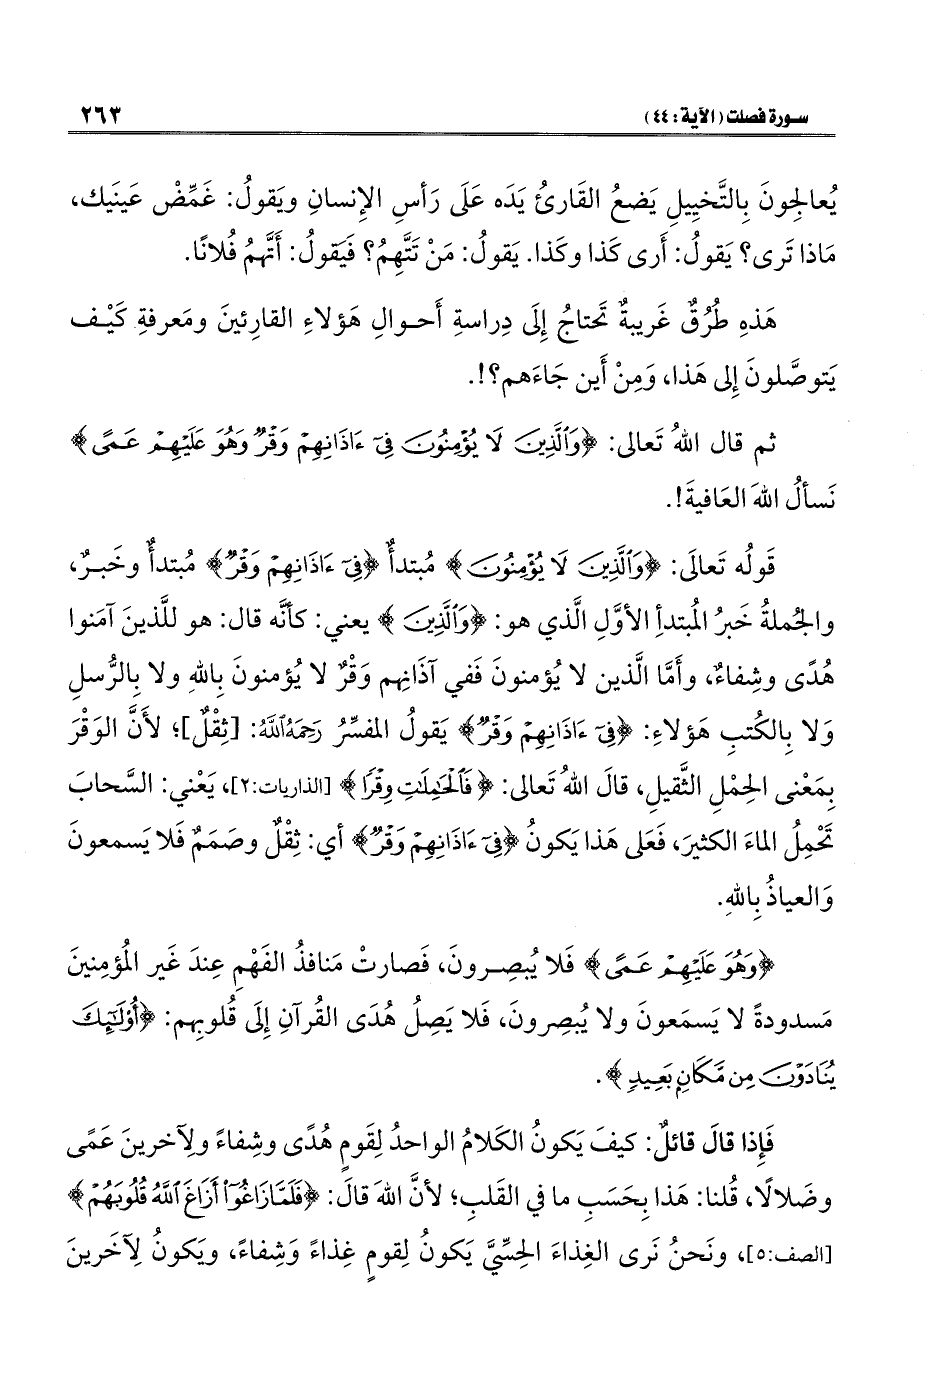 سورة فصلت (الآية: ٤٤) ٢٦٣
يُعالِجونَ بِالتَّخييلِ يَضعُ القَارئُ يَدَه عَلَى رَأسِ الإِنسانِ ويَقولُ: غَمِّضْ عَينَيك،
مَاذا تَرى؟ يَقولُ: أَرى كَذا وكَذا. يَقولُ: مَنْ تَتَّهِمُ؟ فَيَقولُ: أتَّهِمُ فُلانًا.
هَذهِ طُرُقٌ غَريبةٌ تَحتاجُ إِلَى دِراسةِ أَحـوالِ هَؤلاءِ القارِئينَ ومَعرفةِ كَيْـف
يَتوصَّلونَ إِلى هَذا، وَمِنْ أَين جَاءَهم؟!.
ثم قال اللهُ تَعالى: ﴿وَٱلَّذِينَ لَا يُؤْمِنُونَ فِىٓ ءَاذَانِهِمْ وَقْرٌ وَهُوَ عَلَيْهِمْ عَمًى﴾
نَسألُ اللهَ العَافيةَ!.
قَولُه تَعالَى: ﴿وَٱلَّذِينَ لَا يُؤْمِنُونَ﴾ مُبتدأٌ ﴿فِىٓ ءَاذَانِهِمْ وَقْرٌ﴾ مُبتدأٌ وخَبرٌ،
والجُملةُ خَبرُ المُبتدأِ الأوَّلِ الَّذي هو: ﴿وَٱلَّذِينَ﴾ يعني: كأنَّه قال: هو للَّذينَ آمَنوا
هُدًى وشِفاءٌ، وأمَّا الَّذين لا يُؤمنونَ فَفي آذَانِهم وَقْرٌ لا يُؤمنونَ بِاللهِ ولا بِالرُّسلِ
وَلا بِالكُتبِ هَؤلاءِ: ﴿فِىٓ ءَاذَانِهِمْ وَقْرٌ﴾ يَقولُ المفسِّرُ رَحِمَهُ اللَّهُ: [ثِقْلٌ]؛ لأنَّ الوَقْرَ
بِمَعْنى الحِمْلِ الثَّقيلِ، قالَ اللهُ تَعالى: ﴿فَٱلْحَٰمِلَٰتِ وِقْرًا﴾ [الذاريات:٢]، يَعْني: السَّحابَ
تَحْمِلُ الماءَ الكثيرَ، فَعَلى هَذا يَكونُ ﴿فِىٓ ءَاذَانِهِمْ وَقْرٌ﴾ أي: ثِقْلٌ وصَمَمٌ فَلا يَسمعونَ
وَالعياذُ بِاللهِ.
﴿وَهُوَ عَلَيْهِمْ عَمًى﴾ فَلا يُبصِـرونَ، فَصارتْ مَنافذُ الفَهْمِ عِندَ غَيرِ المُؤمِنينَ
مَسدودةً لا يَسمَعونَ ولا يُبصِرونَ، فَلا يَصِلُ هُدَى القُرآنِ إِلَى قُلوبِهم: ﴿أُوْلَٰٓئِكَ
يُنَادَوْنَ مِن مَّكَانٍۭ بَعِيدٍ﴾.
فَإِذا قالَ قائلٌ: كيفَ يَكونُ الكَلامُ الواحدُ لِقَومٍ هُدًى وشِفاءً ولِآخرينَ عَمًى
وضَلالًا، قُلنا: هَذا بِحَسَبِ ما في القَلبِ؛ لأنَّ اللهَ قالَ: ﴿فَلَمَّا زَاغُوٓا۟ أَزَاغَ ٱللَّهُ قُلُوبَهُمْ﴾
[الصف:٥]، ونَحنُ نَرى الغِذاءَ الحِسِّيَّ يَكونُ لِقومٍ غِذاءً وَشِفاءً، ويَكونُ لِآخَرينَ